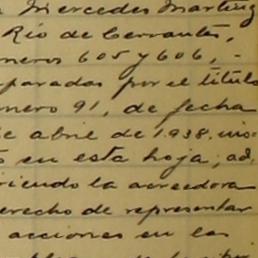 Mercedes Martínez
Río de Cervantes,
meros 605 y 606, -
paradas por el título
mero 91, de fecha
e abril de 1938, ins-
en esta hoja, ad,
riendo la acreedora
erecho de representar
acciones en las